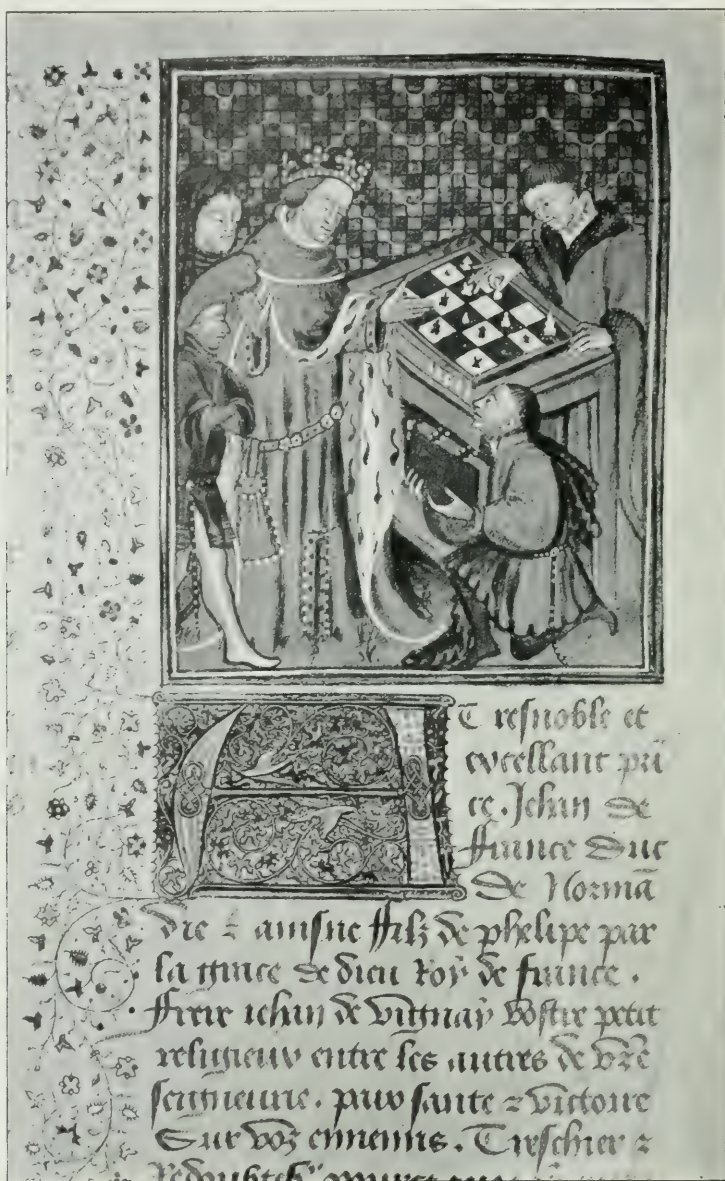 A Tresnoble et
excellant prī
ce. Jehan de
france duc
de Normā
die ⁊ aisne filz de phelipe par
la grace de dieu Roy de france.
Frere iehan de vignay vostre petit
religieux entre les autres de vr̄e
seigneurie. paix sante ⁊ victoire
Sur voz ennemis. Treschier ⁊